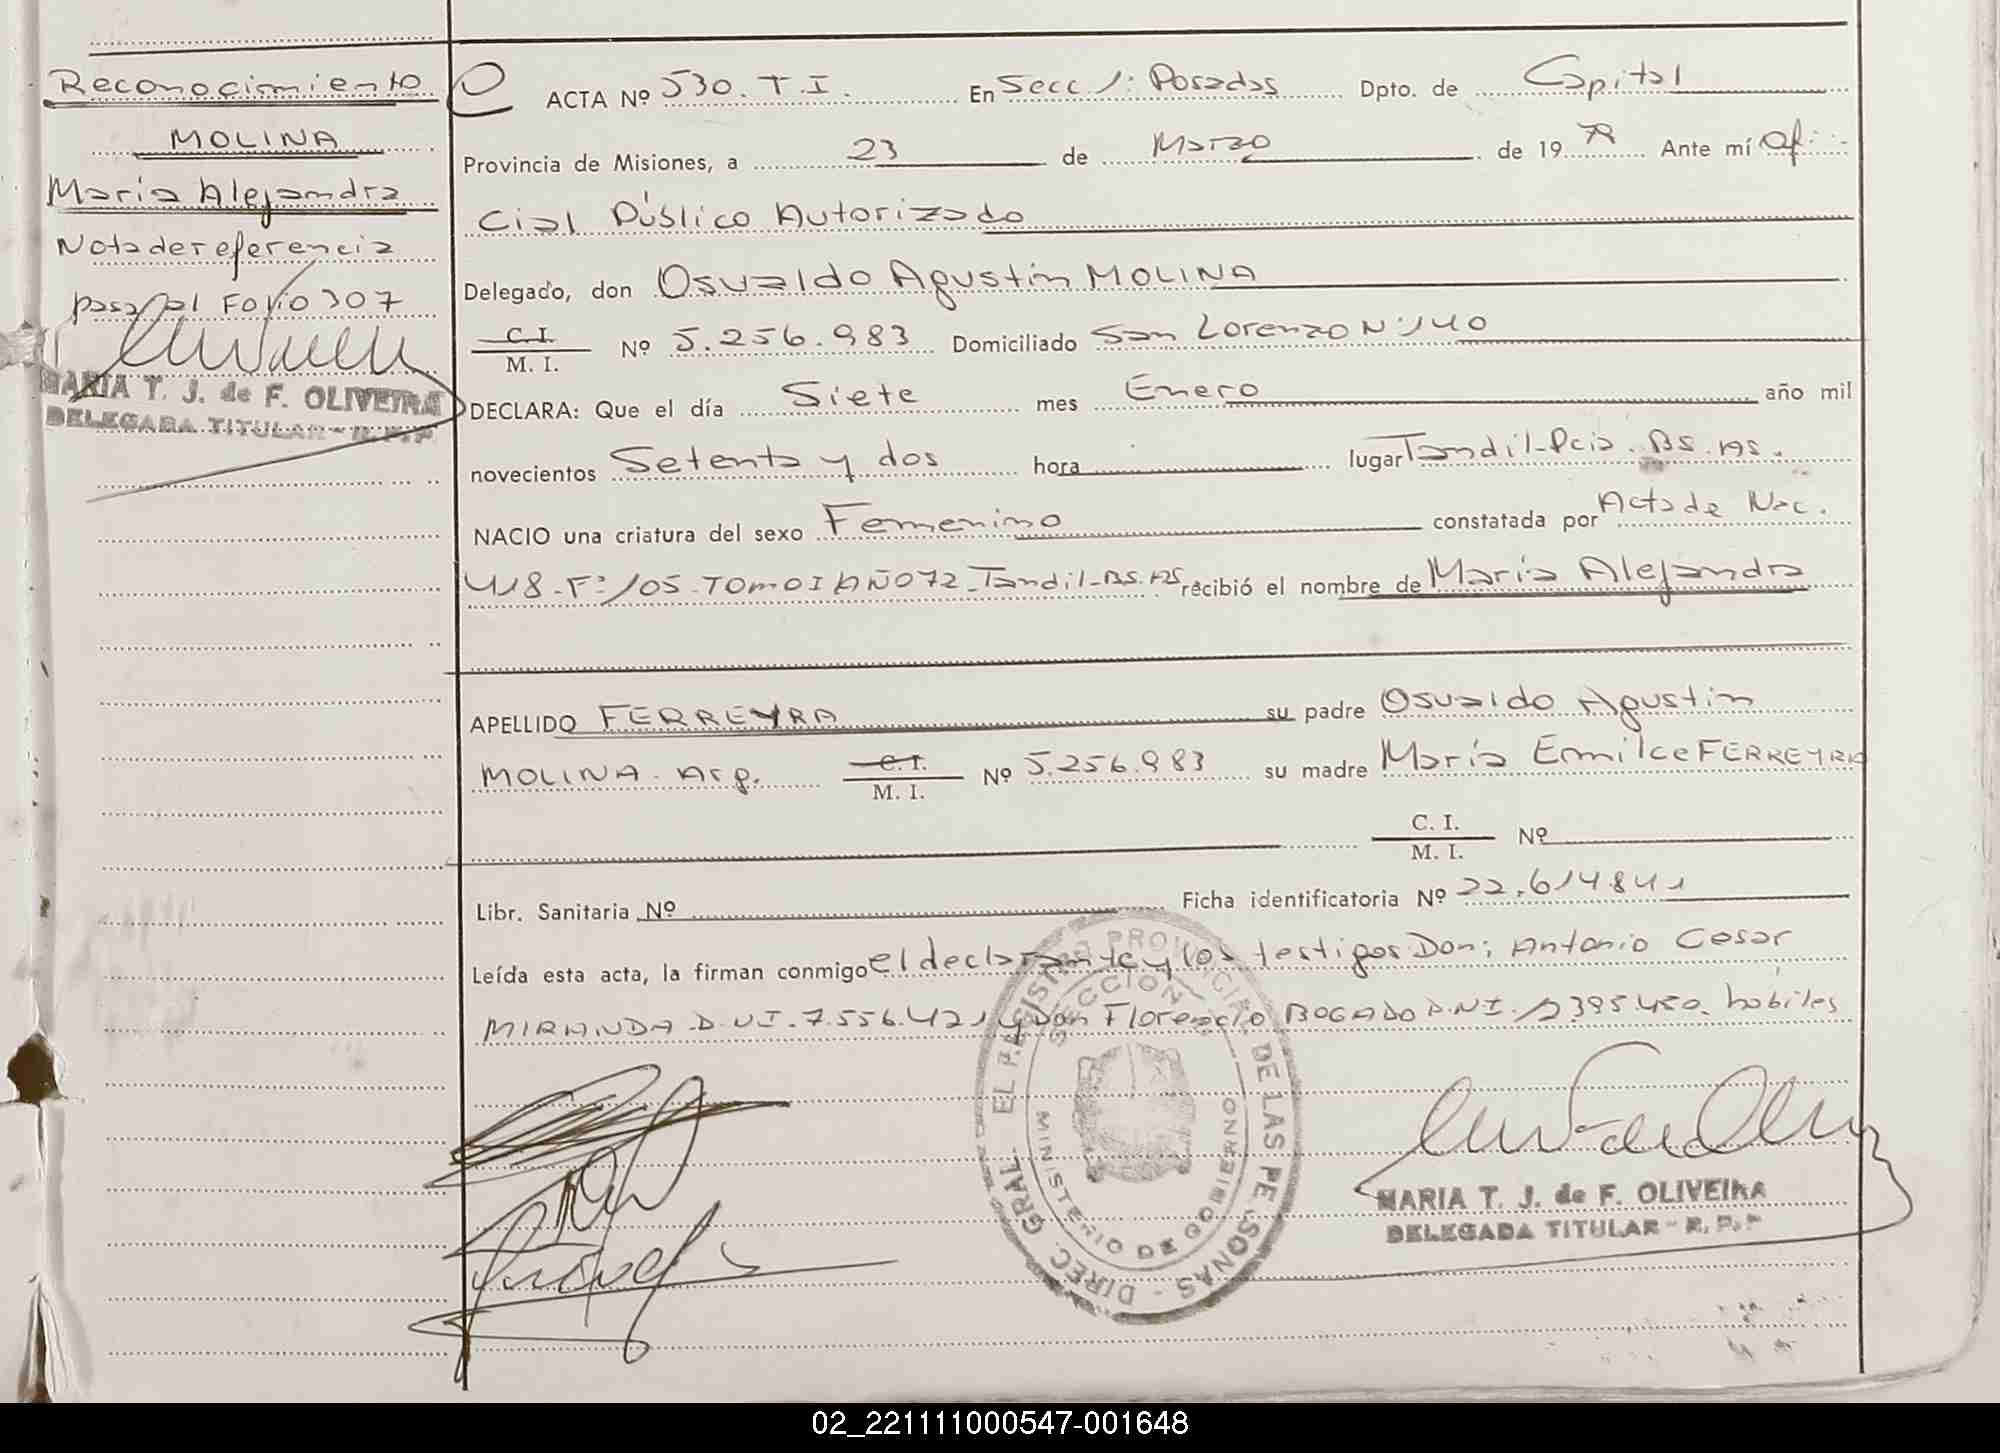 Reconocimiento
MOLINA
Maria Alejandra
Nota de referencia
pasa al Folio 307
MARIA T. J. de F. OLIVEIRA
DELEGADA TITULAR - R. P. P
ACTA Nº 530. T. I. En Secc 1: Posadas Dpto. de Capital
Provincia de Misiones, a 23 de Marzo de 19 79 Ante mí Ofi
cial Público Autorizado
Delegado, don Osvaldo Agustín MOLINA
C. I.
M. I.
Nº 5.256.983 Domiciliado San Lorenzo Nº 140
DECLARA: Que el día Siete mes Enero año mil
novecientos Setenta y dos hora lugar Tandil-Pcia. BS. AS.
NACIO una criatura del sexo Femenino constatada por Acta de Nac.
418-Fº 105-TOMO I AÑO 72-Tandil-BS. AS recibió el nombre de María Alejandra
APELLIDO FERREYRA su padre Osvaldo Agustín
MOLINA. Arg. C. I. M. I. Nº 5.256.983 su madre María Ermilce FERREYRA
C. I.
M. I.
Nº
Libr. Sanitaria Nº Ficha identificatoria Nº 22.614.841
Leída esta acta, la firman conmigo el declarante y los testigos Don: Antonio Cesar
MIRANDA. D.NI. 7.556.421 y Don Florencio BOGADO D.NI. habiles
DIREC. GRAL. EL REGISTRO PROVINCIAL DE LAS PERSONAS
SECCION
MINISTERIO DE GOBIERNO
MARIA T. J. de F. OLIVEIRA
DELEGADA TITULAR - R. P. P
02_221111000547-001648